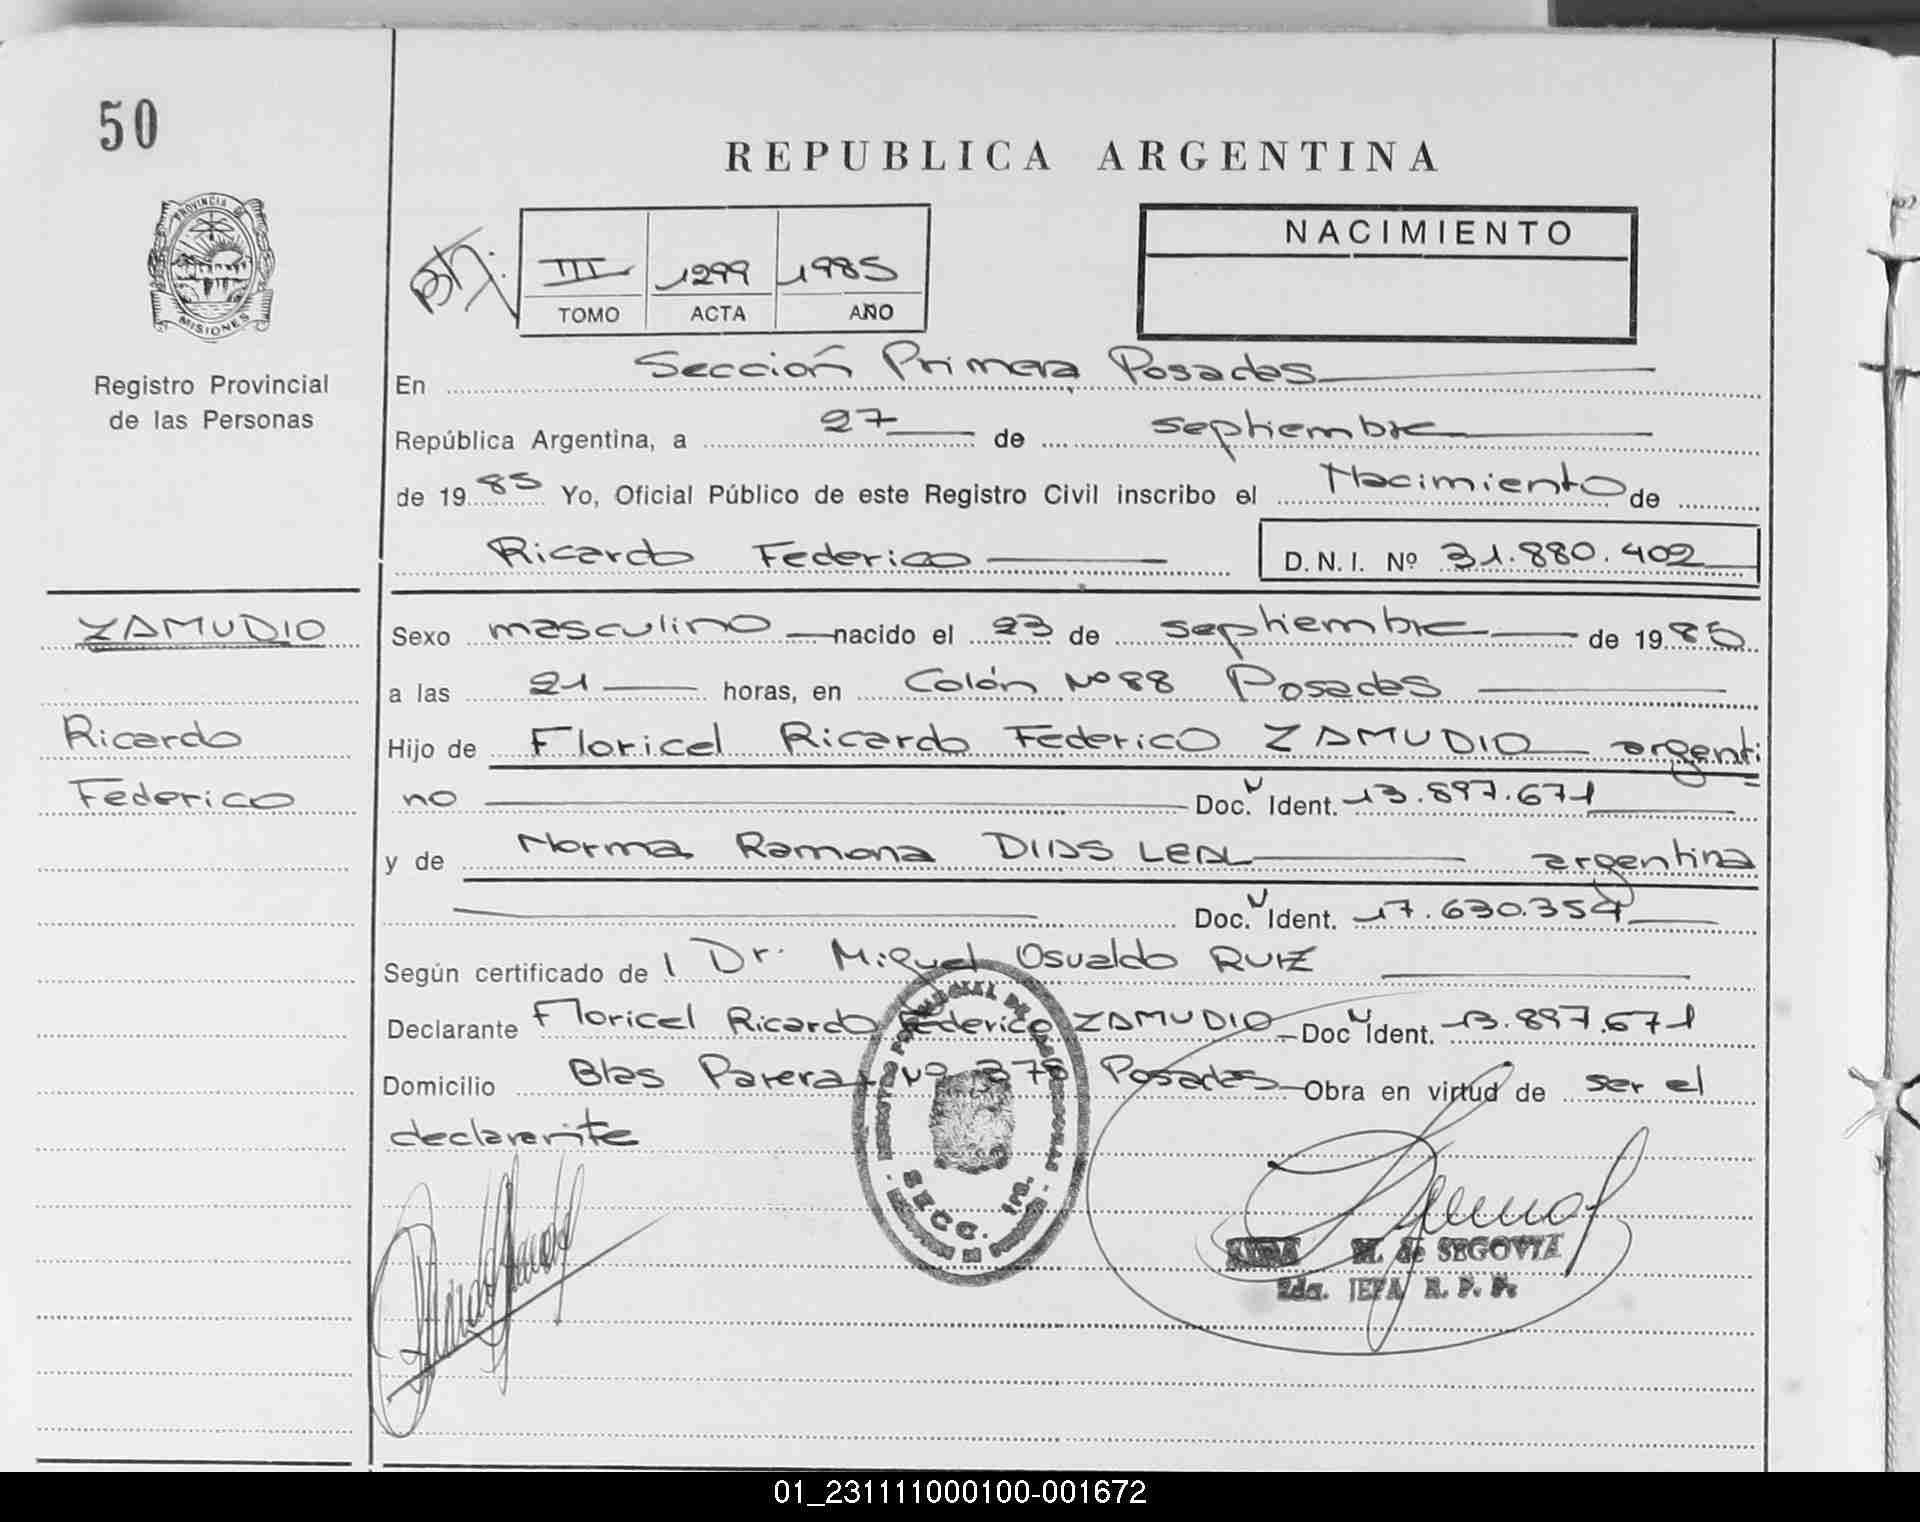 50
REPUBLICA ARGENTINA
PROVINCIA DE
MISIONES
Registro Provincial
de las Personas
III 1299 1985
TOMO ACTA AÑO
NACIMIENTO
En Sección Primera Posadas
República Argentina, a 27 de septiembre
de 1985 Yo, Oficial Público de este Registro Civil inscribo el Nacimiento de
Ricardo Federico D.N.I. Nº 31.880.402
ZAMUDIO
Ricardo
Federico
Sexo masculino nacido el 23 de septiembre de 1985
a las 21 horas, en Colón Nº 88 Posadas
Hijo de Floricel Ricardo Federico ZAMUDIO argenti
no Doc. Ident. 13.897.671
y de Norma Ramona DIIAS LEAL argentina
Doc. Ident. 17.630.354
Según certificado de Dr. Miguel Osvaldo RUIZ
Declarante Floricel Ricardo Federico ZAMUDIO Doc Ident. 13.897.671
Domicilio Blas Parera Nº 378 Posadas Obra en virtud de ser el
declarante
SECC. 1ra.
M. de SEGOVIA
2da. JEFA R. P. P.
01_231111000100-001672